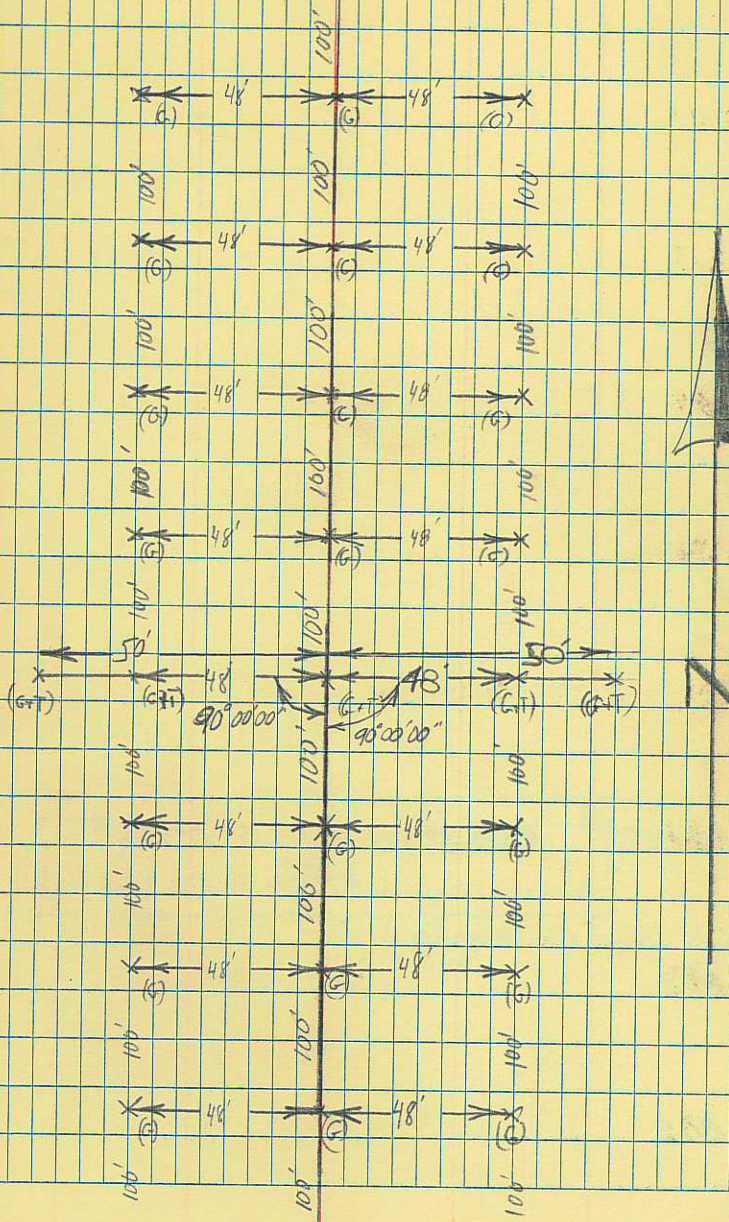 100'
48' 48'
(G) (G) (G)
100' 100' 100'
48' 48'
(G) (G) (G)
100' 100' 100'
48' 48'
(G) (G) (G)
100' 100' 100'
48' 48'
(G) (G) (G)
100' 100' 100'
50' 50'
48' 48'
(G+T) (G+T) (G+T) (G+T) (G+T)
90°00'00" 90°00'00"
100' 100' 100'
48' 48'
(G) (G) (G)
100' 100' 100'
48' 48'
(G) (G) (G)
100' 100' 100'
48' 48'
(G) (G) (G)
100' 100' 100'
N